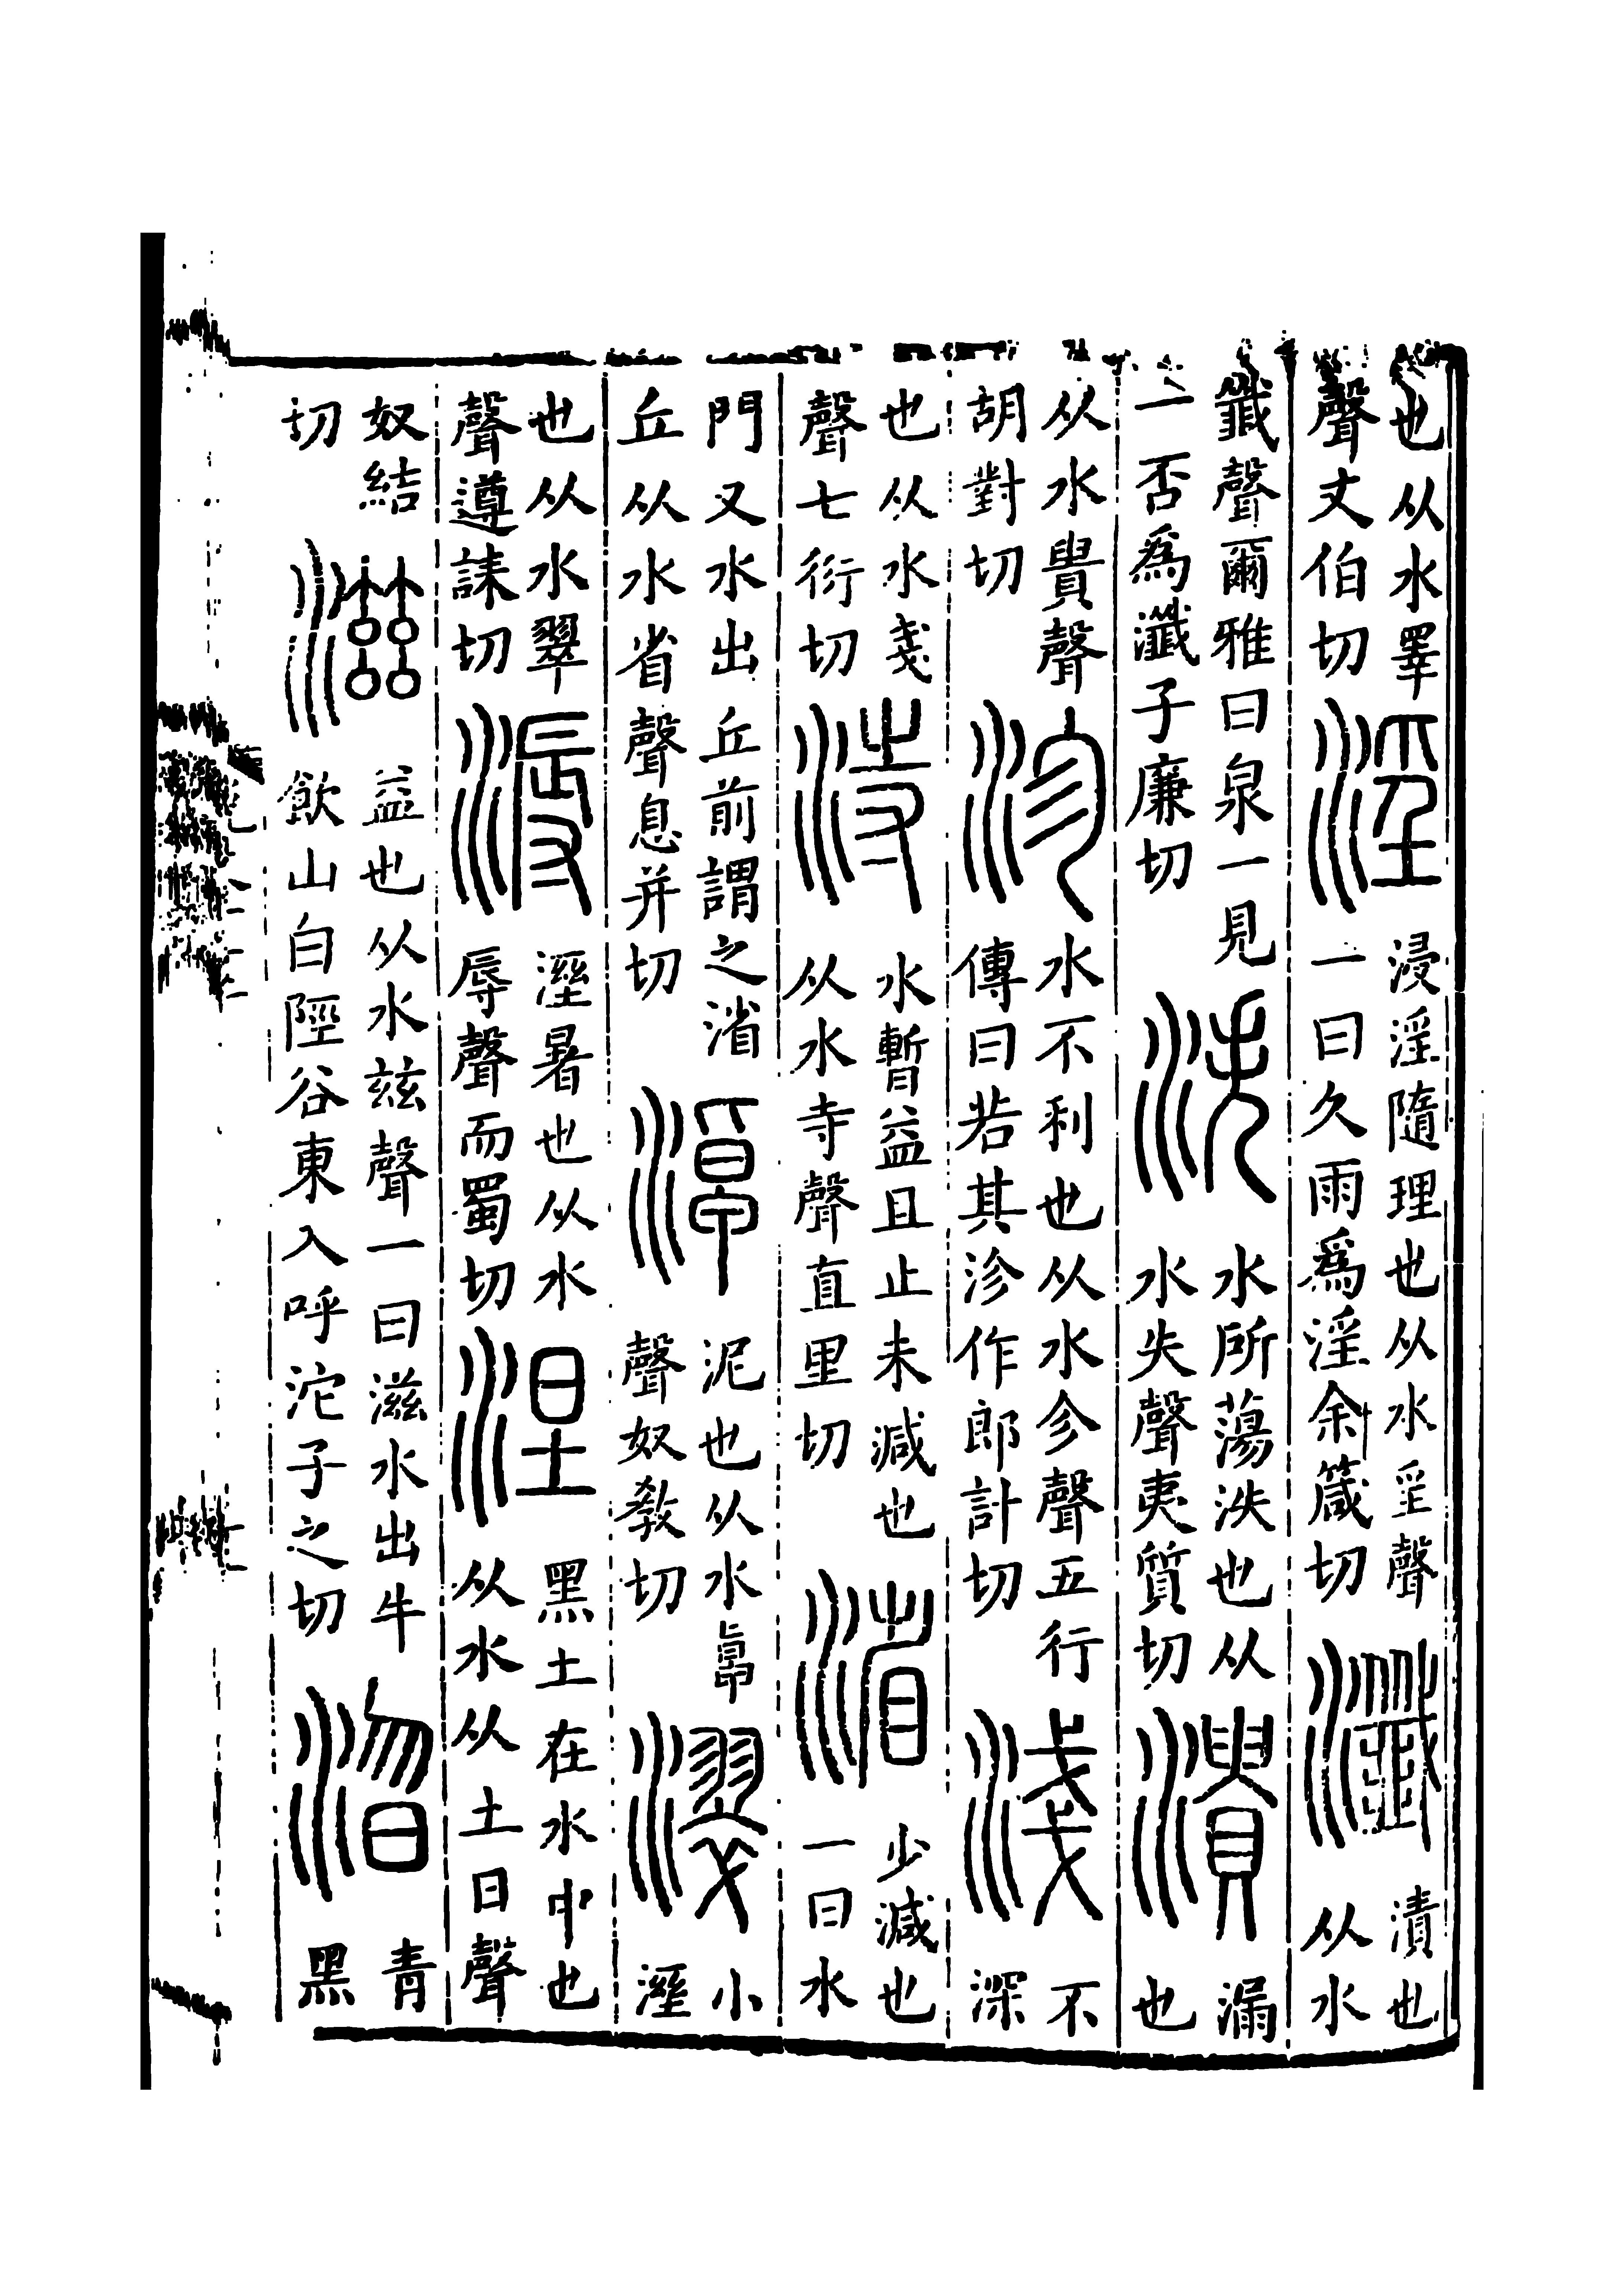 也从水睪聲丈伯切淫浸淫隨理也从水㸒聲一曰久雨爲淫余箴切瀸漬也从水
韱聲爾雅曰泉一見一否爲瀸子廉切泆水所蕩泆也从水失聲夷質切潰漏也
从水貴聲胡對切沴水不利也从水㐱聲五行傳曰若其沴作郎計切淺不深
也从水戔聲七衍切洔水暫益且止未減也从水寺聲直里切渻少減也一曰水
門又水出丘前謂之渻丘从水省聲息并切淖泥也从水卓聲奴敎切濢小溼
也从水翠聲遵誄切溽溼暑也从水辱聲而蜀切涅黑土在水中也从水从土日聲
奴結切滋益也从水兹聲一曰滋水出牛飲山白陘谷東入呼沱子之切淴青黑